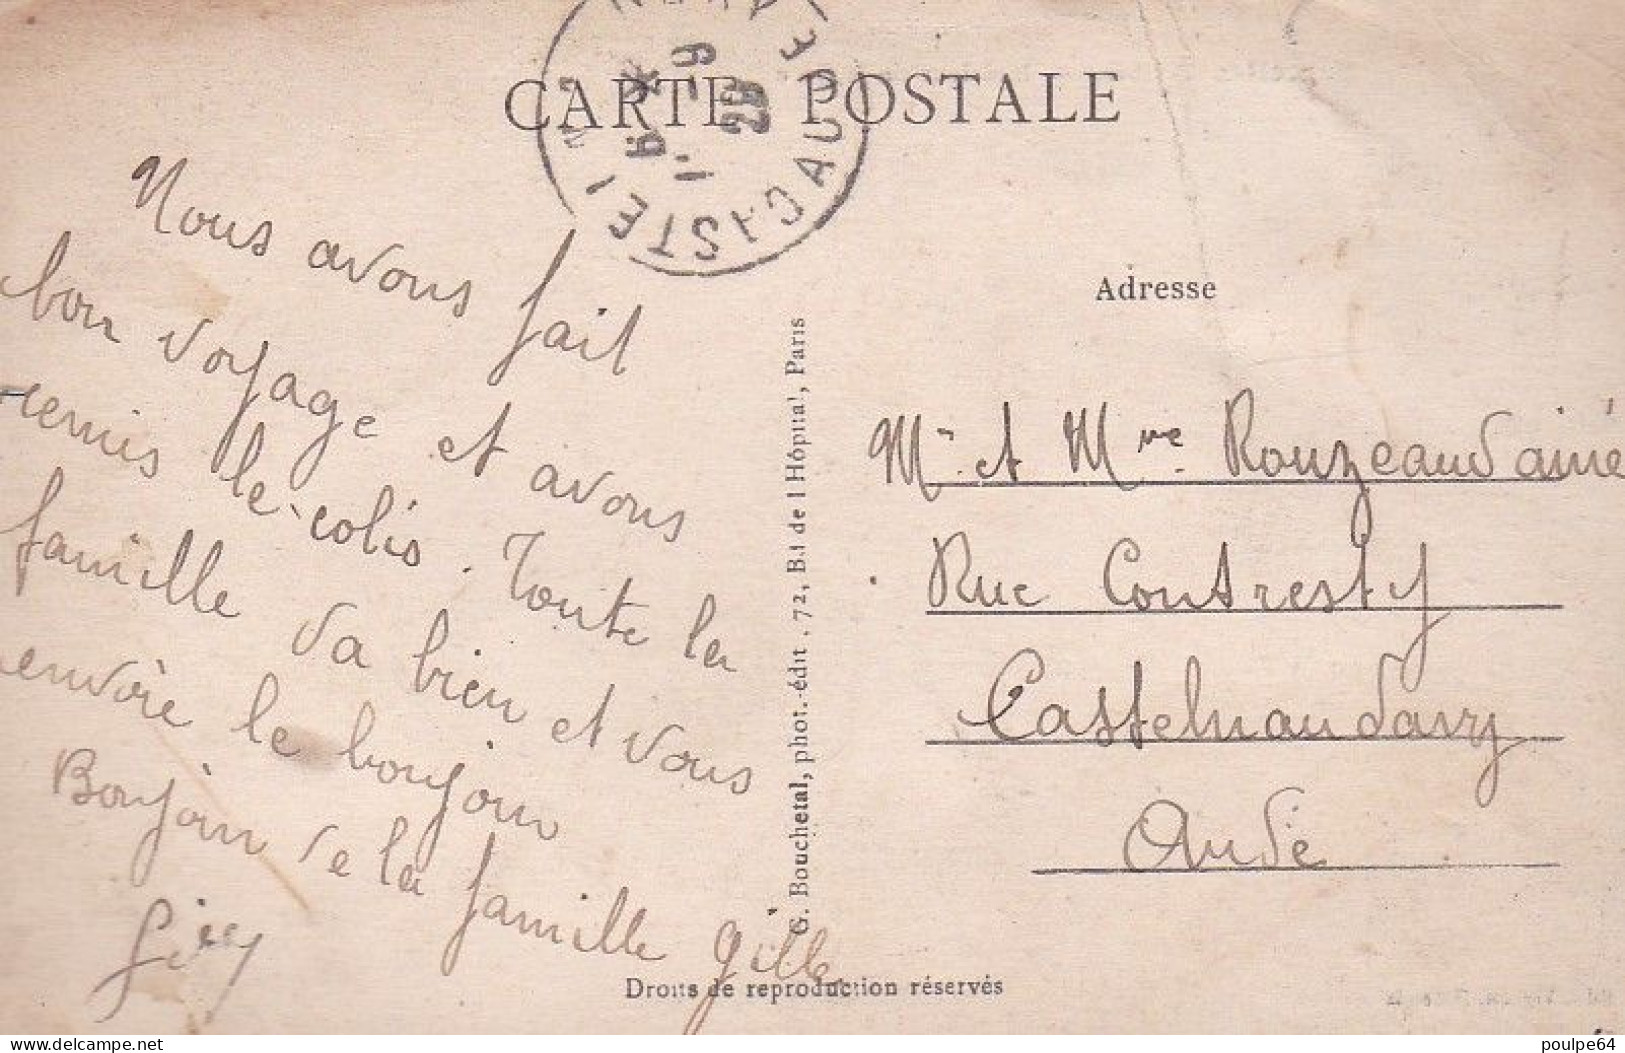 CARTE POSTALE
Nous avons fait
bon voyage et avons
remis le colis. Toute la
famille va bien et vous
envoie le bonjour
Bonjour de la famille gille
Adresse
Mr et Mme Rouzeaud ainé
Rue Contresty
Castelnaudary
Aude
G. Bouchetal, phot.-édit. 72, Bd de l'Hôpital, Paris
Droits de reproduction réservés
delcampe.net
poulpe64